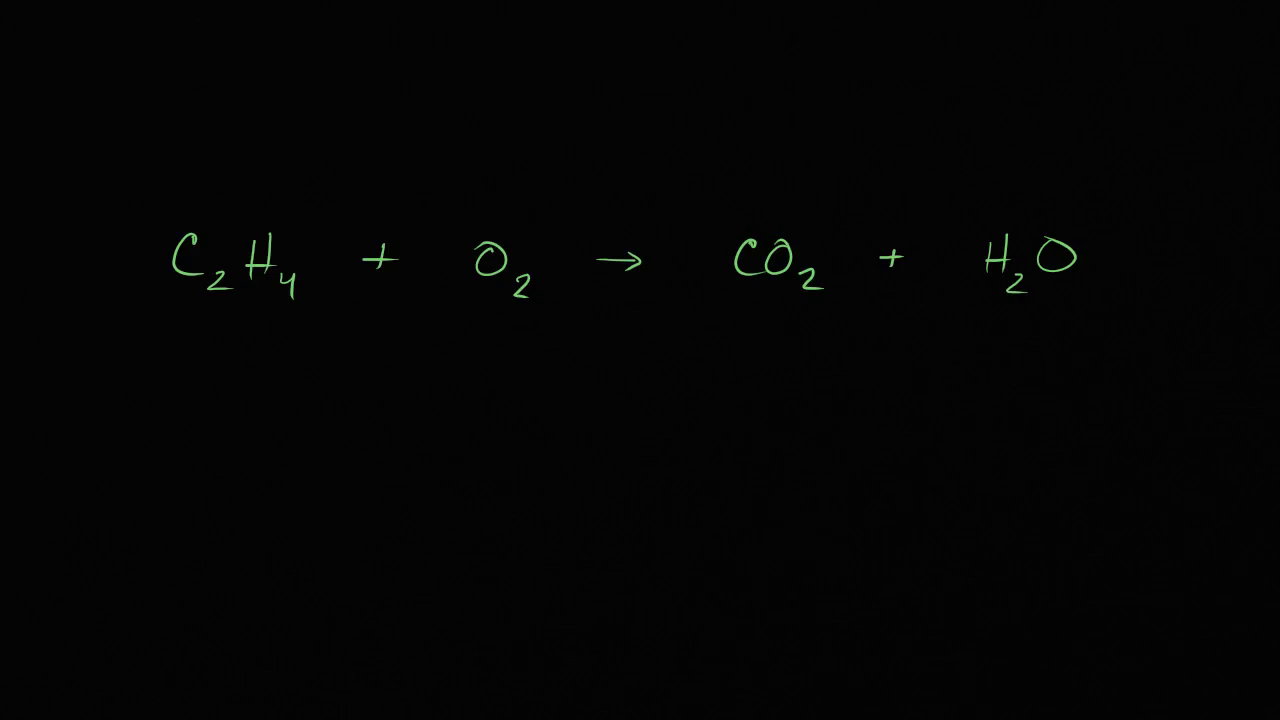 C₂H₄ + O₂ → CO₂ + H₂O